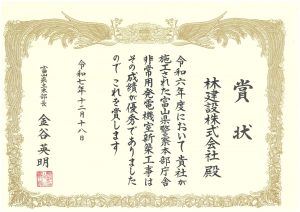 賞状
林建設株式会社 殿
令和六年度において貴社が
施工された富山県警察本部庁舎
非常用発電機室新築工事は
その成績が優秀でありました
ので これを賞します
令和七年十二月十八日
富山県土木部長
金谷英明